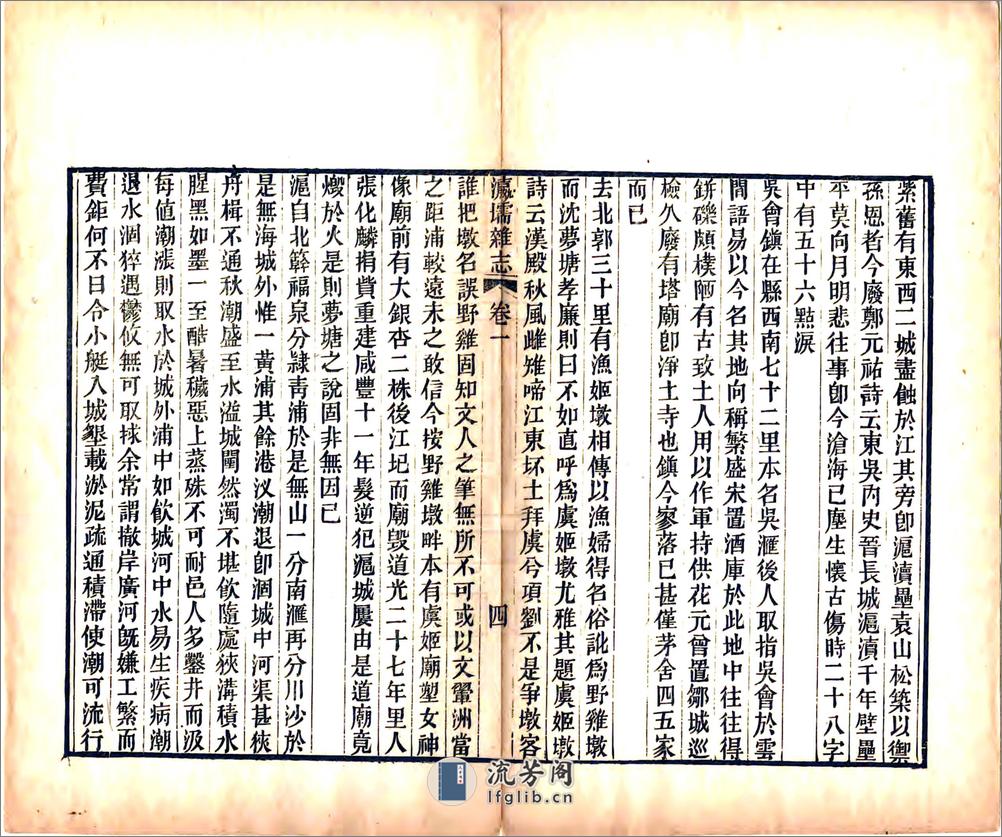 紫舊有東西二城盡蝕於江其旁卽滬瀆壘袁山松築以禦
孫恩者今廢鄭元祐詩云東吳內史晉長城滬瀆千年壁壘
平莫向月明悲往事卽今滄海已塵生懷古傷時二十八字
中有五十六點淚
吳會鎮在縣西南七十二里本名吳滙後人取指吳會於雲
閒語易以今名其地向稱繁盛宋置酒庫於此地中往往得
缾礫頗樸陋有古致土人用以作軍持供花元曾置鄒城巡
檢久廢有塔廟卽淨土寺也鎮今寥落已甚僅茅舍四五家
而已
去北郭三十里有漁姬墩相傳以漁婦得名俗訛爲野雞墩
而沈夢塘孝廉則曰不如直呼爲虞姬墩尤雅其題虞姬墩
詩云漢殿秋風雌雉啼江東坏土拜虞兮項劉不是爭墩客
瀛壖雜志 卷一 四
誰把墩名誤野雞固知文人之筆無所不可或以文翬洲當
之距浦較遠未之敢信今按野雞墩畔本有虞姬廟塑女神
像廟前有大銀杏二株後江圮而廟毀道光二十七年里人
張化麟捐貲重建咸豐十一年髮逆犯滬城屢由是道廟竟
燬於火是則夢塘之說固非無因已
滬自北簳福泉分隸青浦於是無山一分南滙再分川沙於
是無海城外惟一黃浦其餘港汊潮退卽涸城中河渠甚狹
舟楫不通秋潮盛至水溢城闉然濁不堪飮隨處狹溝積水
腥黑如墨一至酷暑穢惡上蒸殊不可耐邑人多鑿井而汲
每値潮漲則取水於城外浦中如飮城河中水易生疾病潮
退水涸猝遇鬱攸無可取捄余常謂撤岸廣河旣嫌工繁而
費鉅何不日令小艇入城墾載淤泥疏通積滯使潮可流行
流芳阁
lfglib.cn